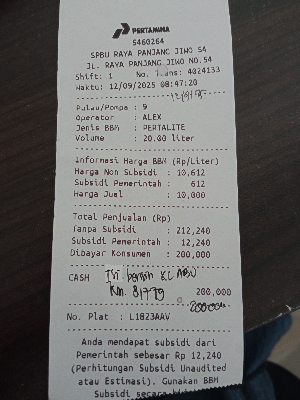 PERTAMINA
5460264
SPBU RAYA PANJANG JIWO 54
JL. RAYA PANJANG JIWO NO.54
Shift: 1 No. Trans: 4024133
Waktu: 12/09/2025 08:47:20
Pulau/Pompa : 9
Operator : ALEX
Jenis BBM : PERTALITE
Volume : 20.00 liter
Informasi Harga BBM (Rp/Liter)
Harga Non Subsidi : 10,612
Subsidi Pemerintah : 612
Harga Jual : 10,000
Total Penjualan (Rp)
Tanpa Subsidi : 212,240
Subsidi Pemerintah : 12,240
Dibayar Konsumen : 200,000
CASH
Km. 81779
200,000
No. Plat : L1823AAV
Anda mendapat subsidi dari
Pemerintah sebesar Rp 12,240
(Perhitungan Subsidi Unaudited
atau Estimasi). Gunakan BBM
Subsidi secara